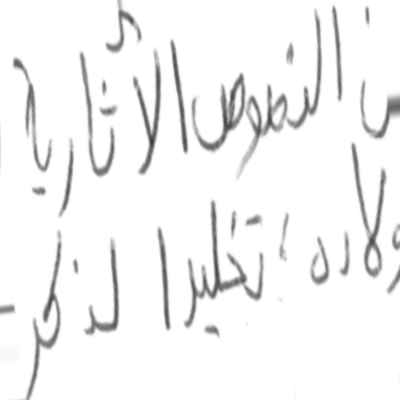 من النصوص الأثارية
ولاده، تخليدا لذكر